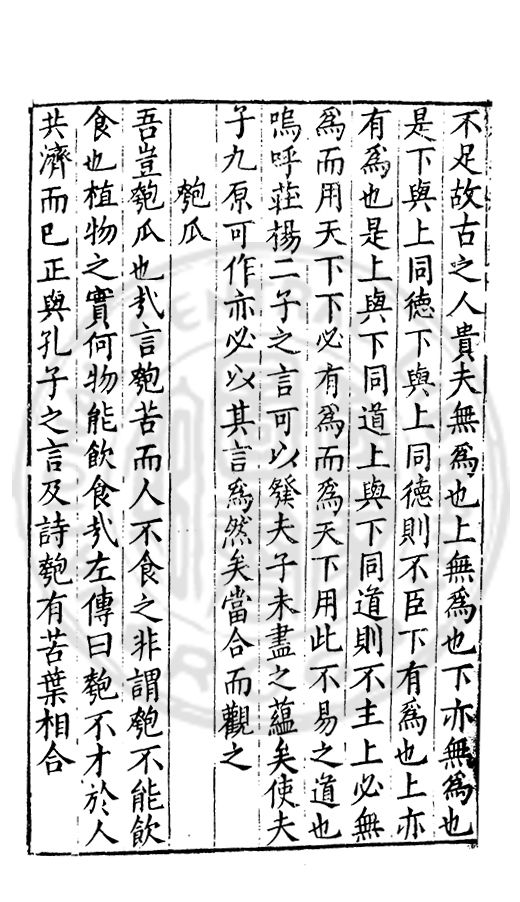 不足故古之人貴夫無為也上無為也下亦無為也
是下與上同徳下與上同徳則不臣下有為也上亦
有為也是上與下同道上與下同道則不主上必無
為而用天下下必有為而為天下用此不易之道也
嗚呼莊楊二子之言可以發夫子未盡之蘊矣使夫
子九原可作亦必以其言為然矣當合而觀之
匏瓜
吾豈匏瓜也哉言匏苦而人不食之非謂匏不能飲
食也植物之實何物能飲食哉左傳曰匏不才於人
共濟而已正與孔子之言及詩匏有苦葉相合